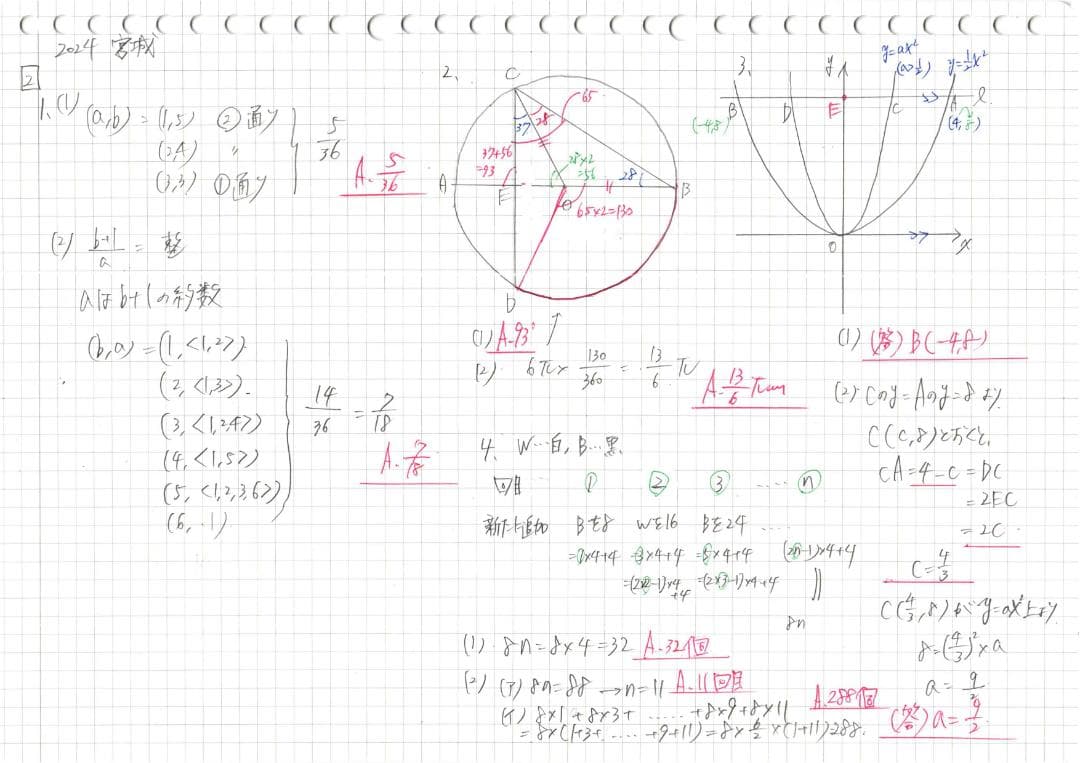 2024 宮城
2
1、(1) (a,b) = (1,5) ②通り
(2,4) 〃
(3,3) ①通り
5/36
A. 5/36
(2) b+1/a = 整
aはb+1の約数
(b,a) = (1,<1,2>)
(2,<1,3>).
(3,<1,2,4>)
(4,<1,5>)
(5,<1,2,3,6>)
(6, 1)
14/36 = 7/18
A. 7/18
2、
C
65
37
28
37+56
=93
28×2
=56
28
A
E
O
B
65×2=130
D
(1) A-93°
(2) 6π× 130/360 = 13/6 π
A- 13/6 πcm
3、
y
y=ax²
(a>1/2)
y=1/2x²
B
D
E
C
A
l
(-4,8)
(4,8)
O
x
(1) (答) B(-4,8)
(2) Cのy=Aのy=8より
C(c,8)とおくと、
CA=4-c=DC
=2EC
=2c
c=4/3
C(4/3,8)がy=ax²上より
8=(4/3)²×a
a=9/2
(答) a=9/2
4、W…白,B…黒
回目 ① ② ③ ‥‥ ⓝ
新たに追加 Bを8 Wを16 Bを24 ‥‥
=1×4+4 =3×4+4 =5×4+4 (2n-1)×4+4
=(2×2-1)×4+4 =(2×3-1)×4+4 ||
8n
(1) 8n=8×4=32 A.32個
(2) (ア) 8n=88 →n=11 A.11回目
(イ) 8×1+8×3+ …… +8×9+8×11
=8×(1+3+ …… +9+11)=8×6/2×(1+11)288.
A.288個